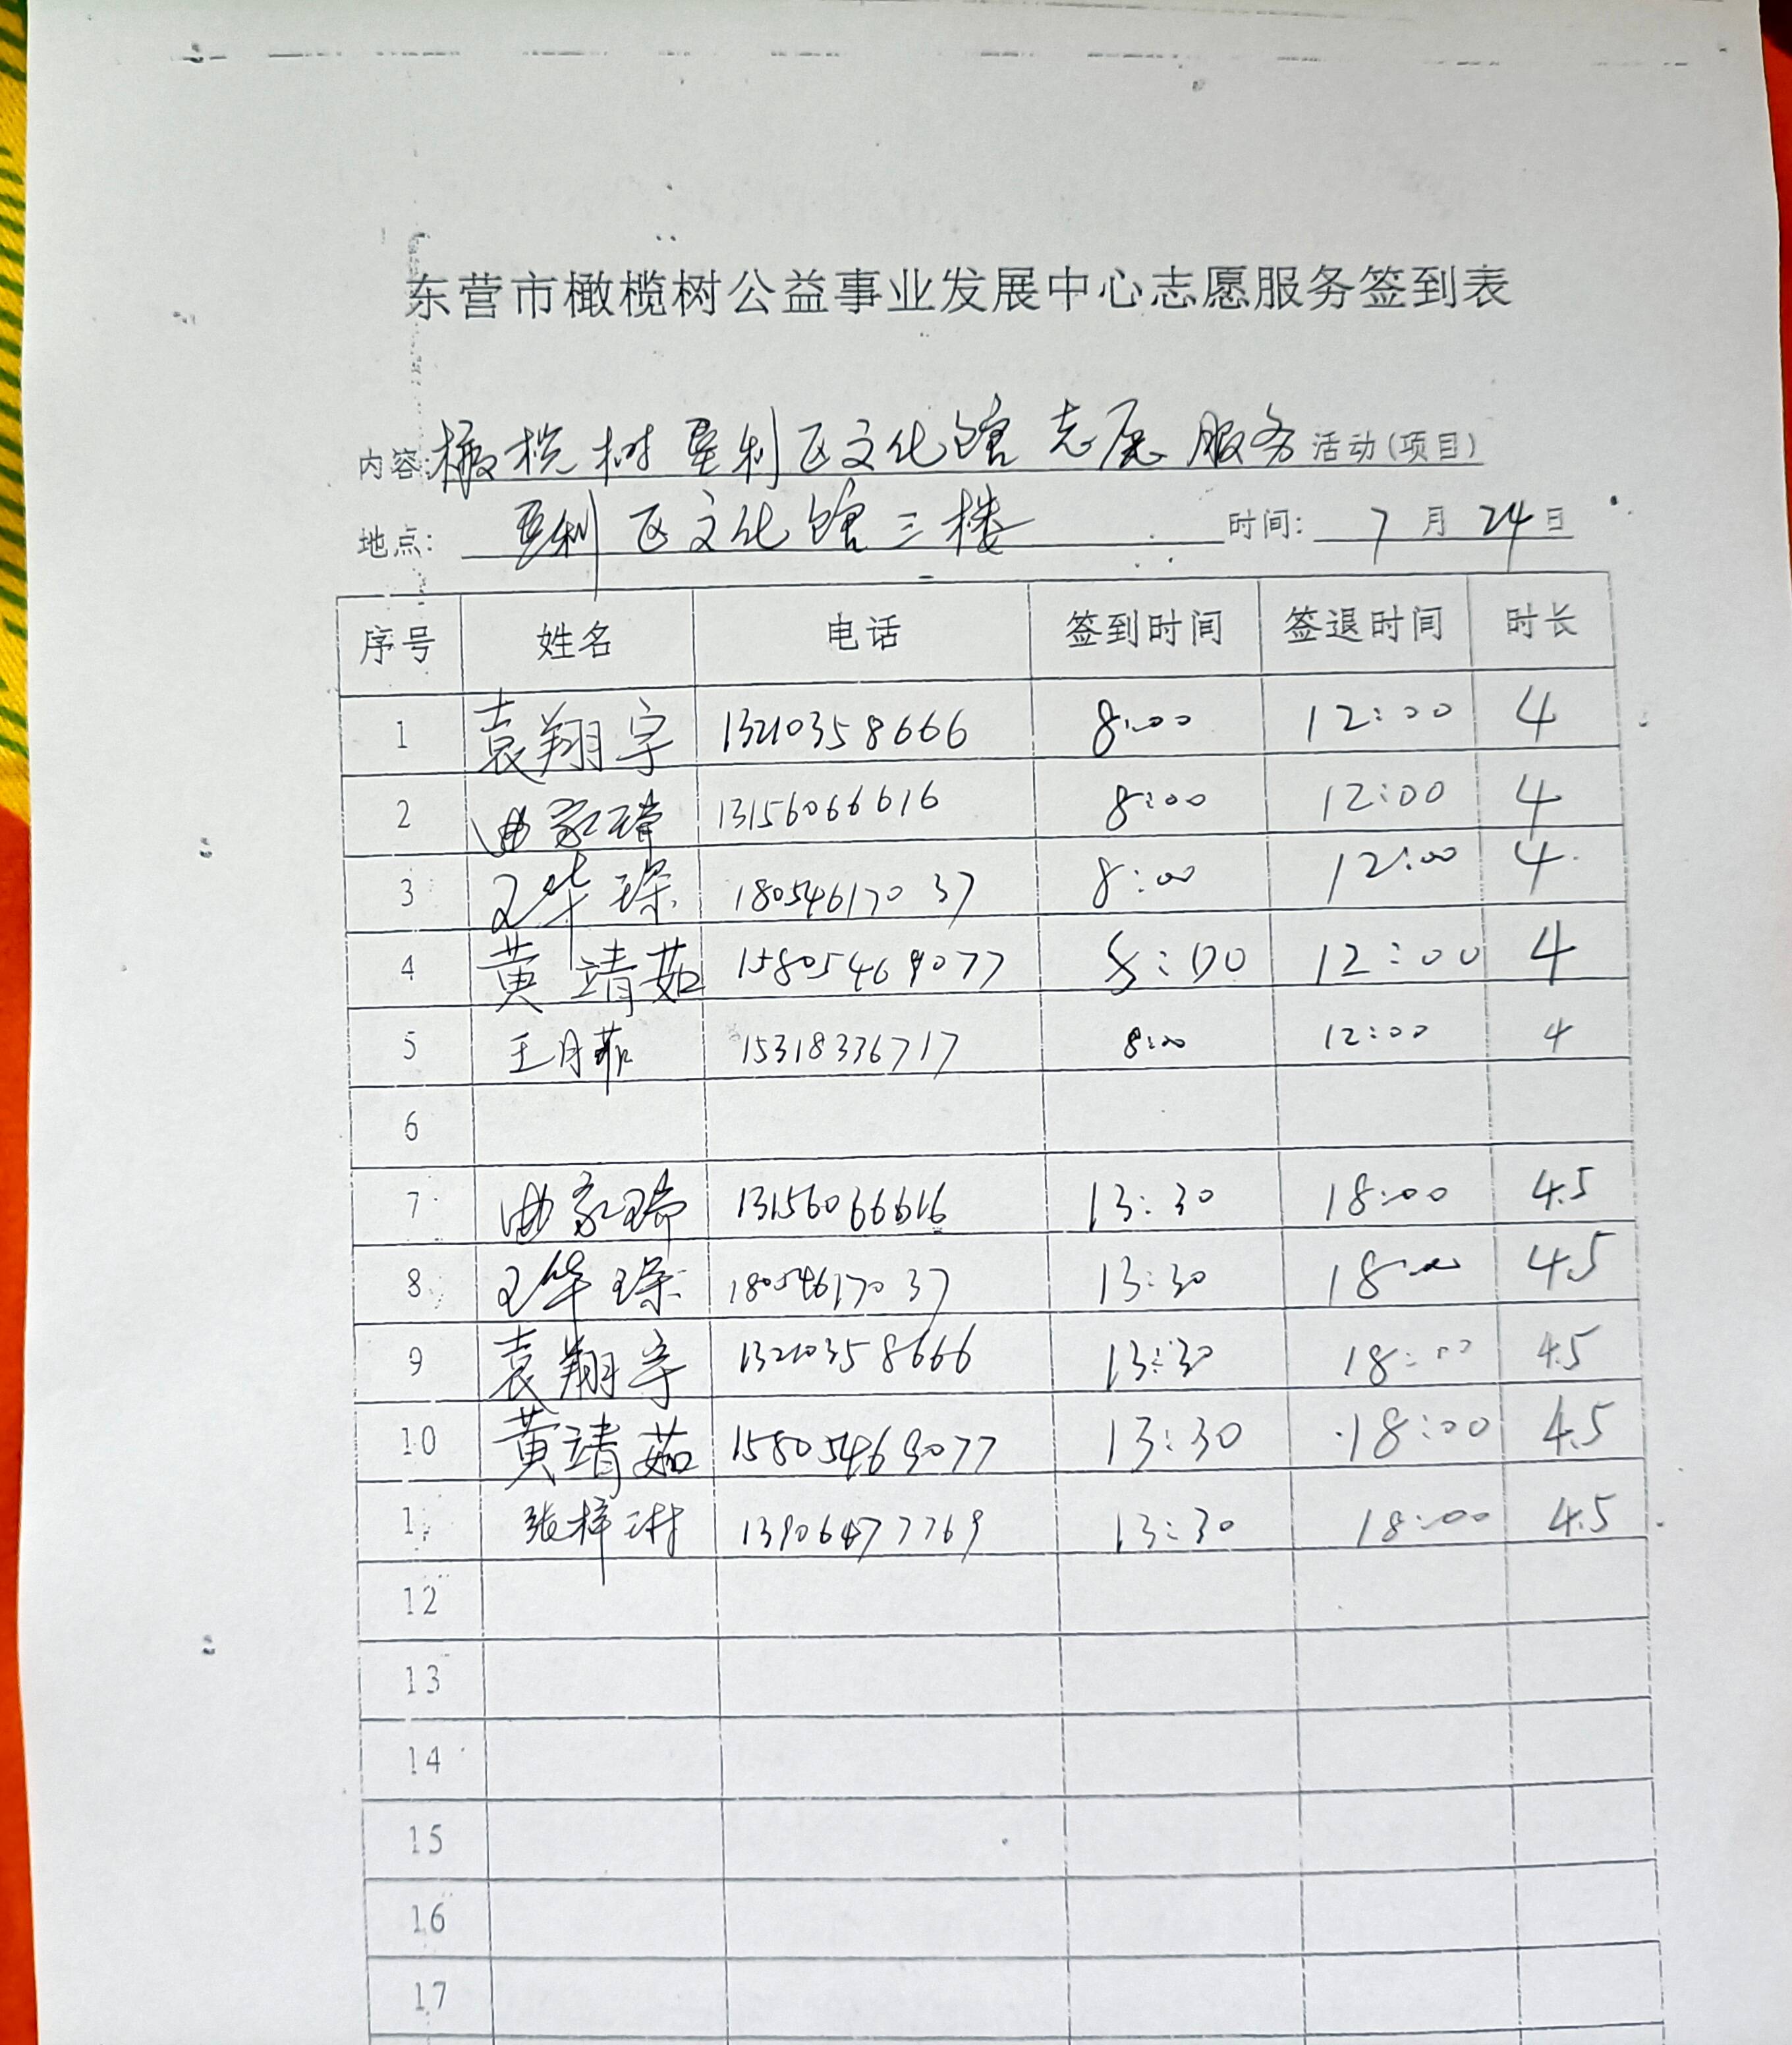 东营市橄榄树公益事业发展中心志愿服务签到表
内容:橄榄树垦利区文化馆志愿服务活动(项目)
地点: 垦利区文化馆三楼 时间: 7月24日
序号 姓名 电话 签到时间 签退时间 时长
1 袁翔宇 13210358666 8:00 12:00 4
2 曲家瑞 13156066616 8:00 12:00 4
3 王华琛 18054617037 8:00 12:00 4
4 黄靖茹 15805469077 8:00 12:00 4
5 王月菲 15318336717 8:00 12:00 4
6
7 曲家瑞 13156066616 13:30 18:00 4.5
8 王华琛 18054617037 13:30 18:00 4.5
9 袁翔宇 13210358666 13:30 18:00 4.5
10 黄靖茹 15805469077 13:30 18:00 4.5
1 张梓琳 13906477769 13:30 18:00 4.5
12
13
14
15
16
17